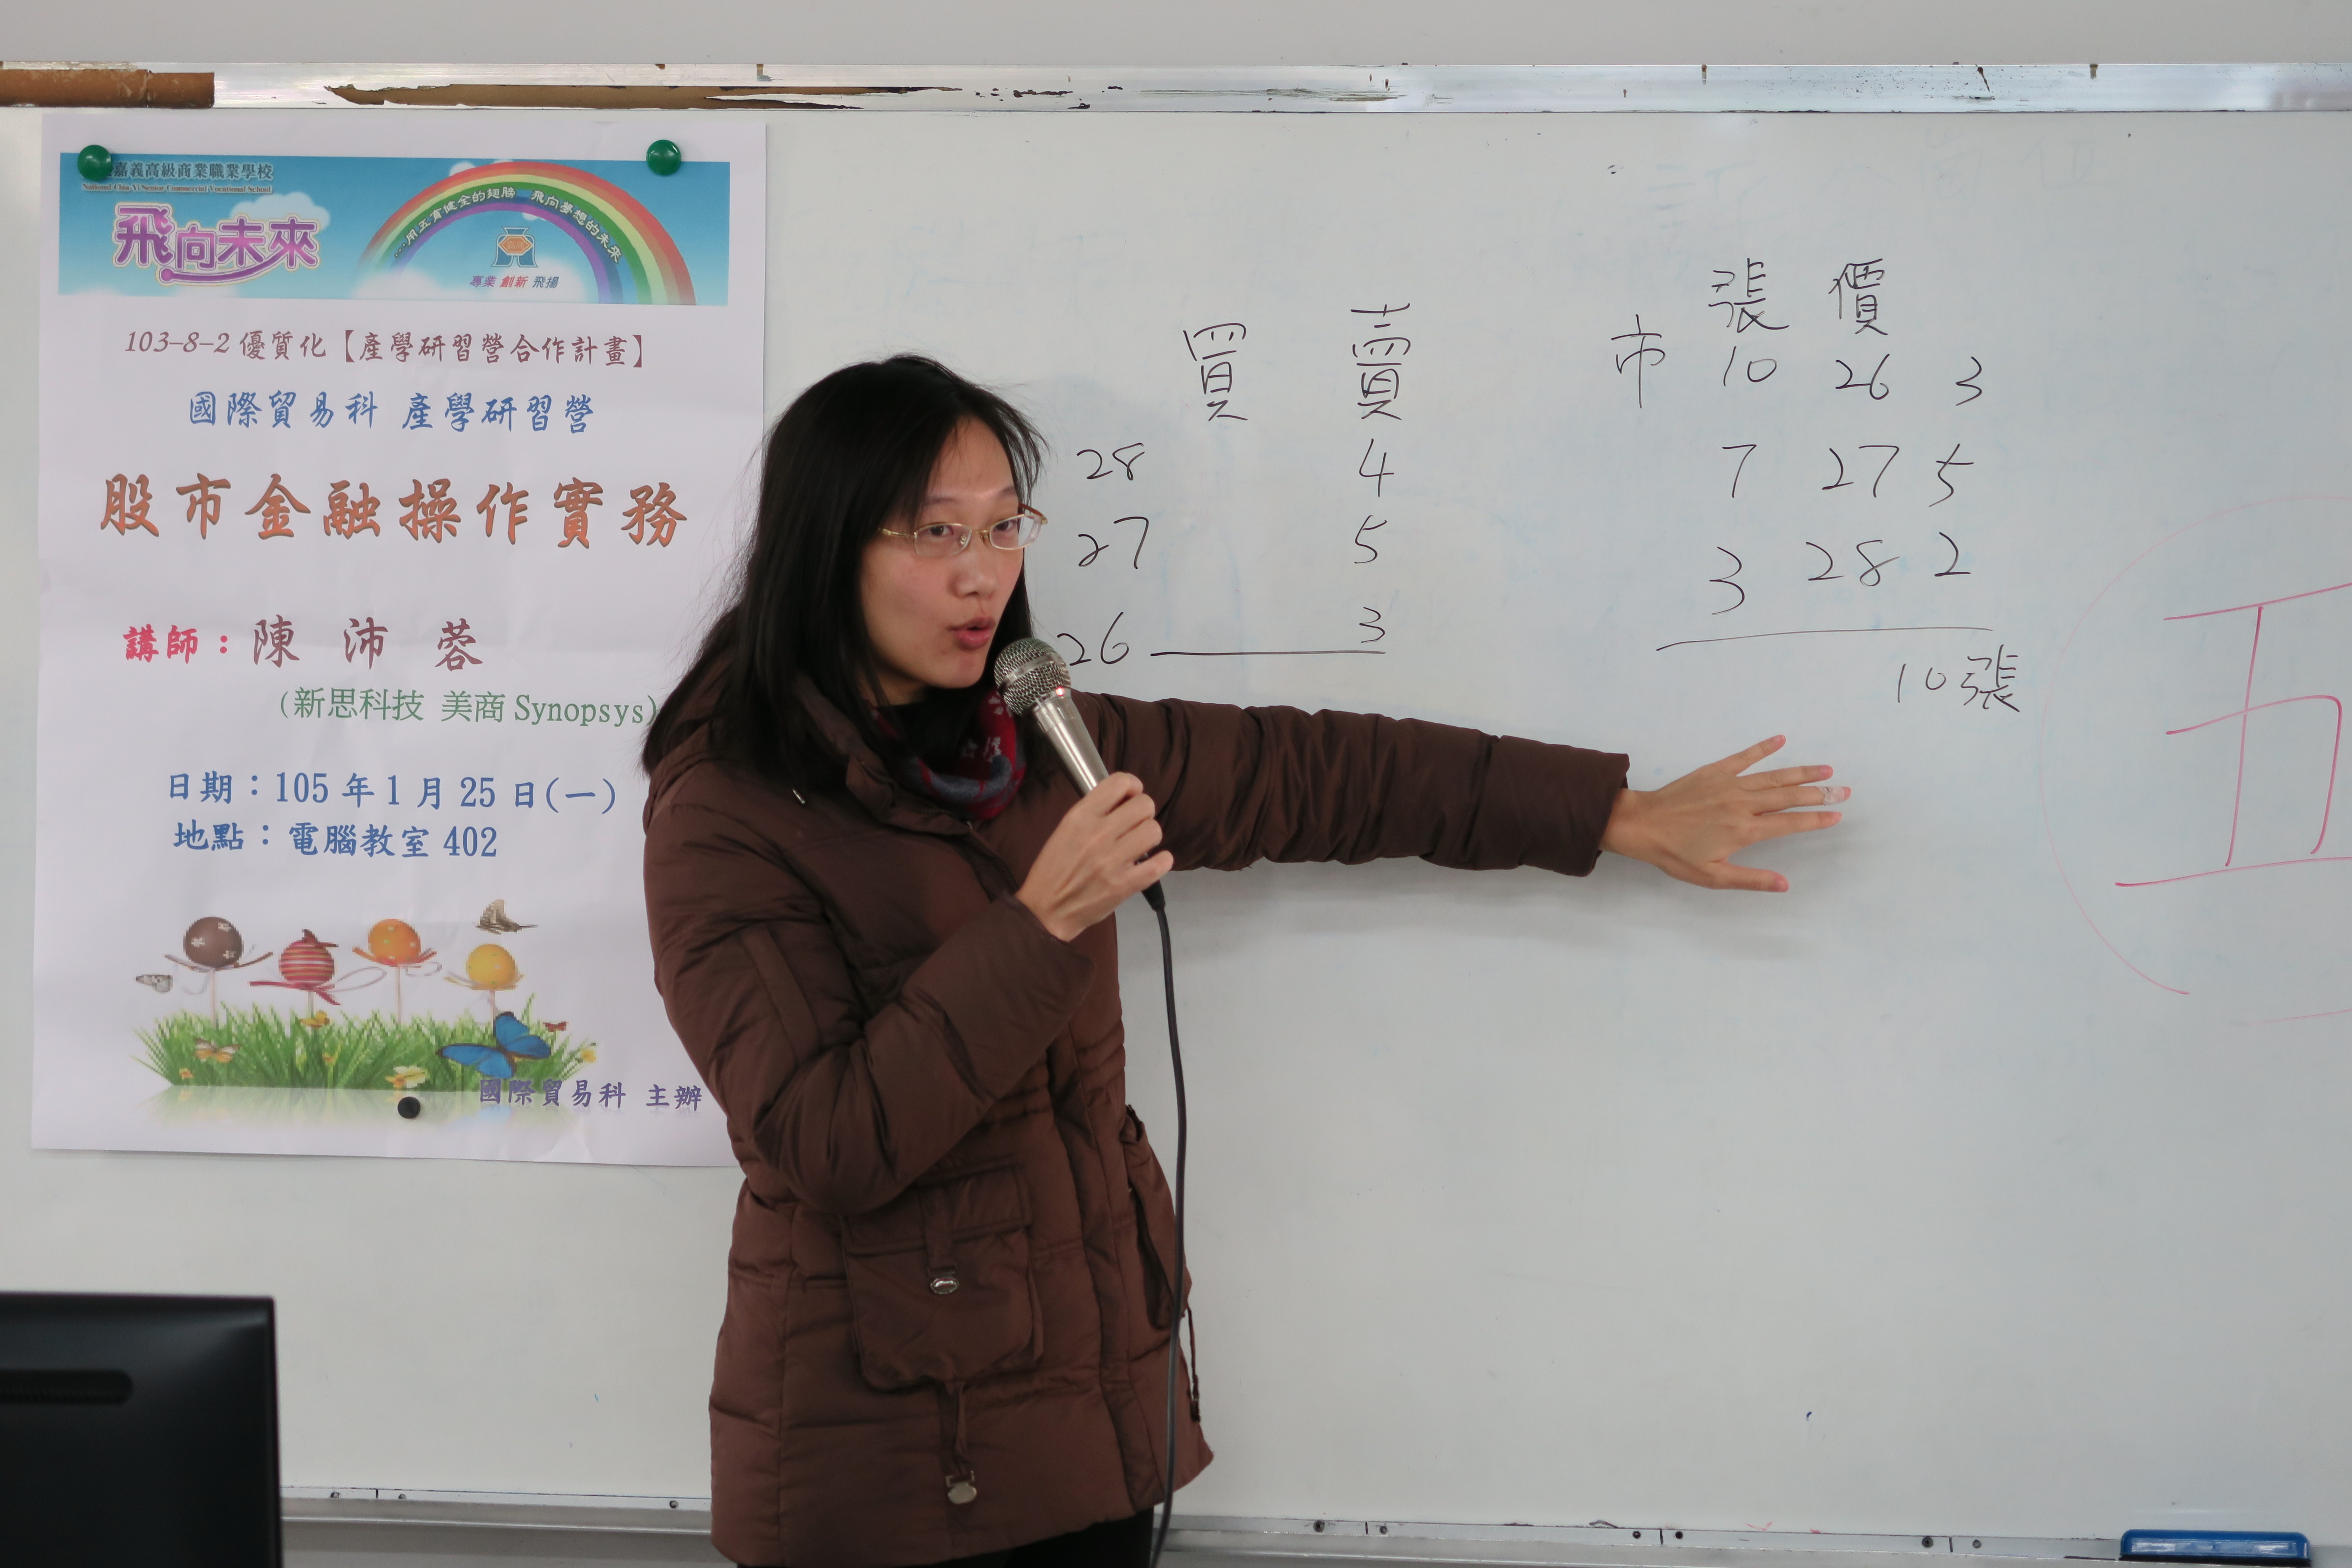 嘉義高級商業職業學校
National Chia-Yi Senior Commercial Vocational School
飛向未來
…用五育健全的翅膀 飛向夢想的未來
專業 創新 飛揚
103-8-2 優質化【產學研習營合作計畫】
國際貿易科 產學研習營
股市金融操作實務
講師：陳沛蓉
(新思科技 美商 Synopsys)
日期：105 年 1 月 25 日(一)
地點：電腦教室 402
國際貿易科 主辦
買 賣
28 4
27 5
26 3
張 價
市 10 26 3
7 27 5
3 28 2
10張
五